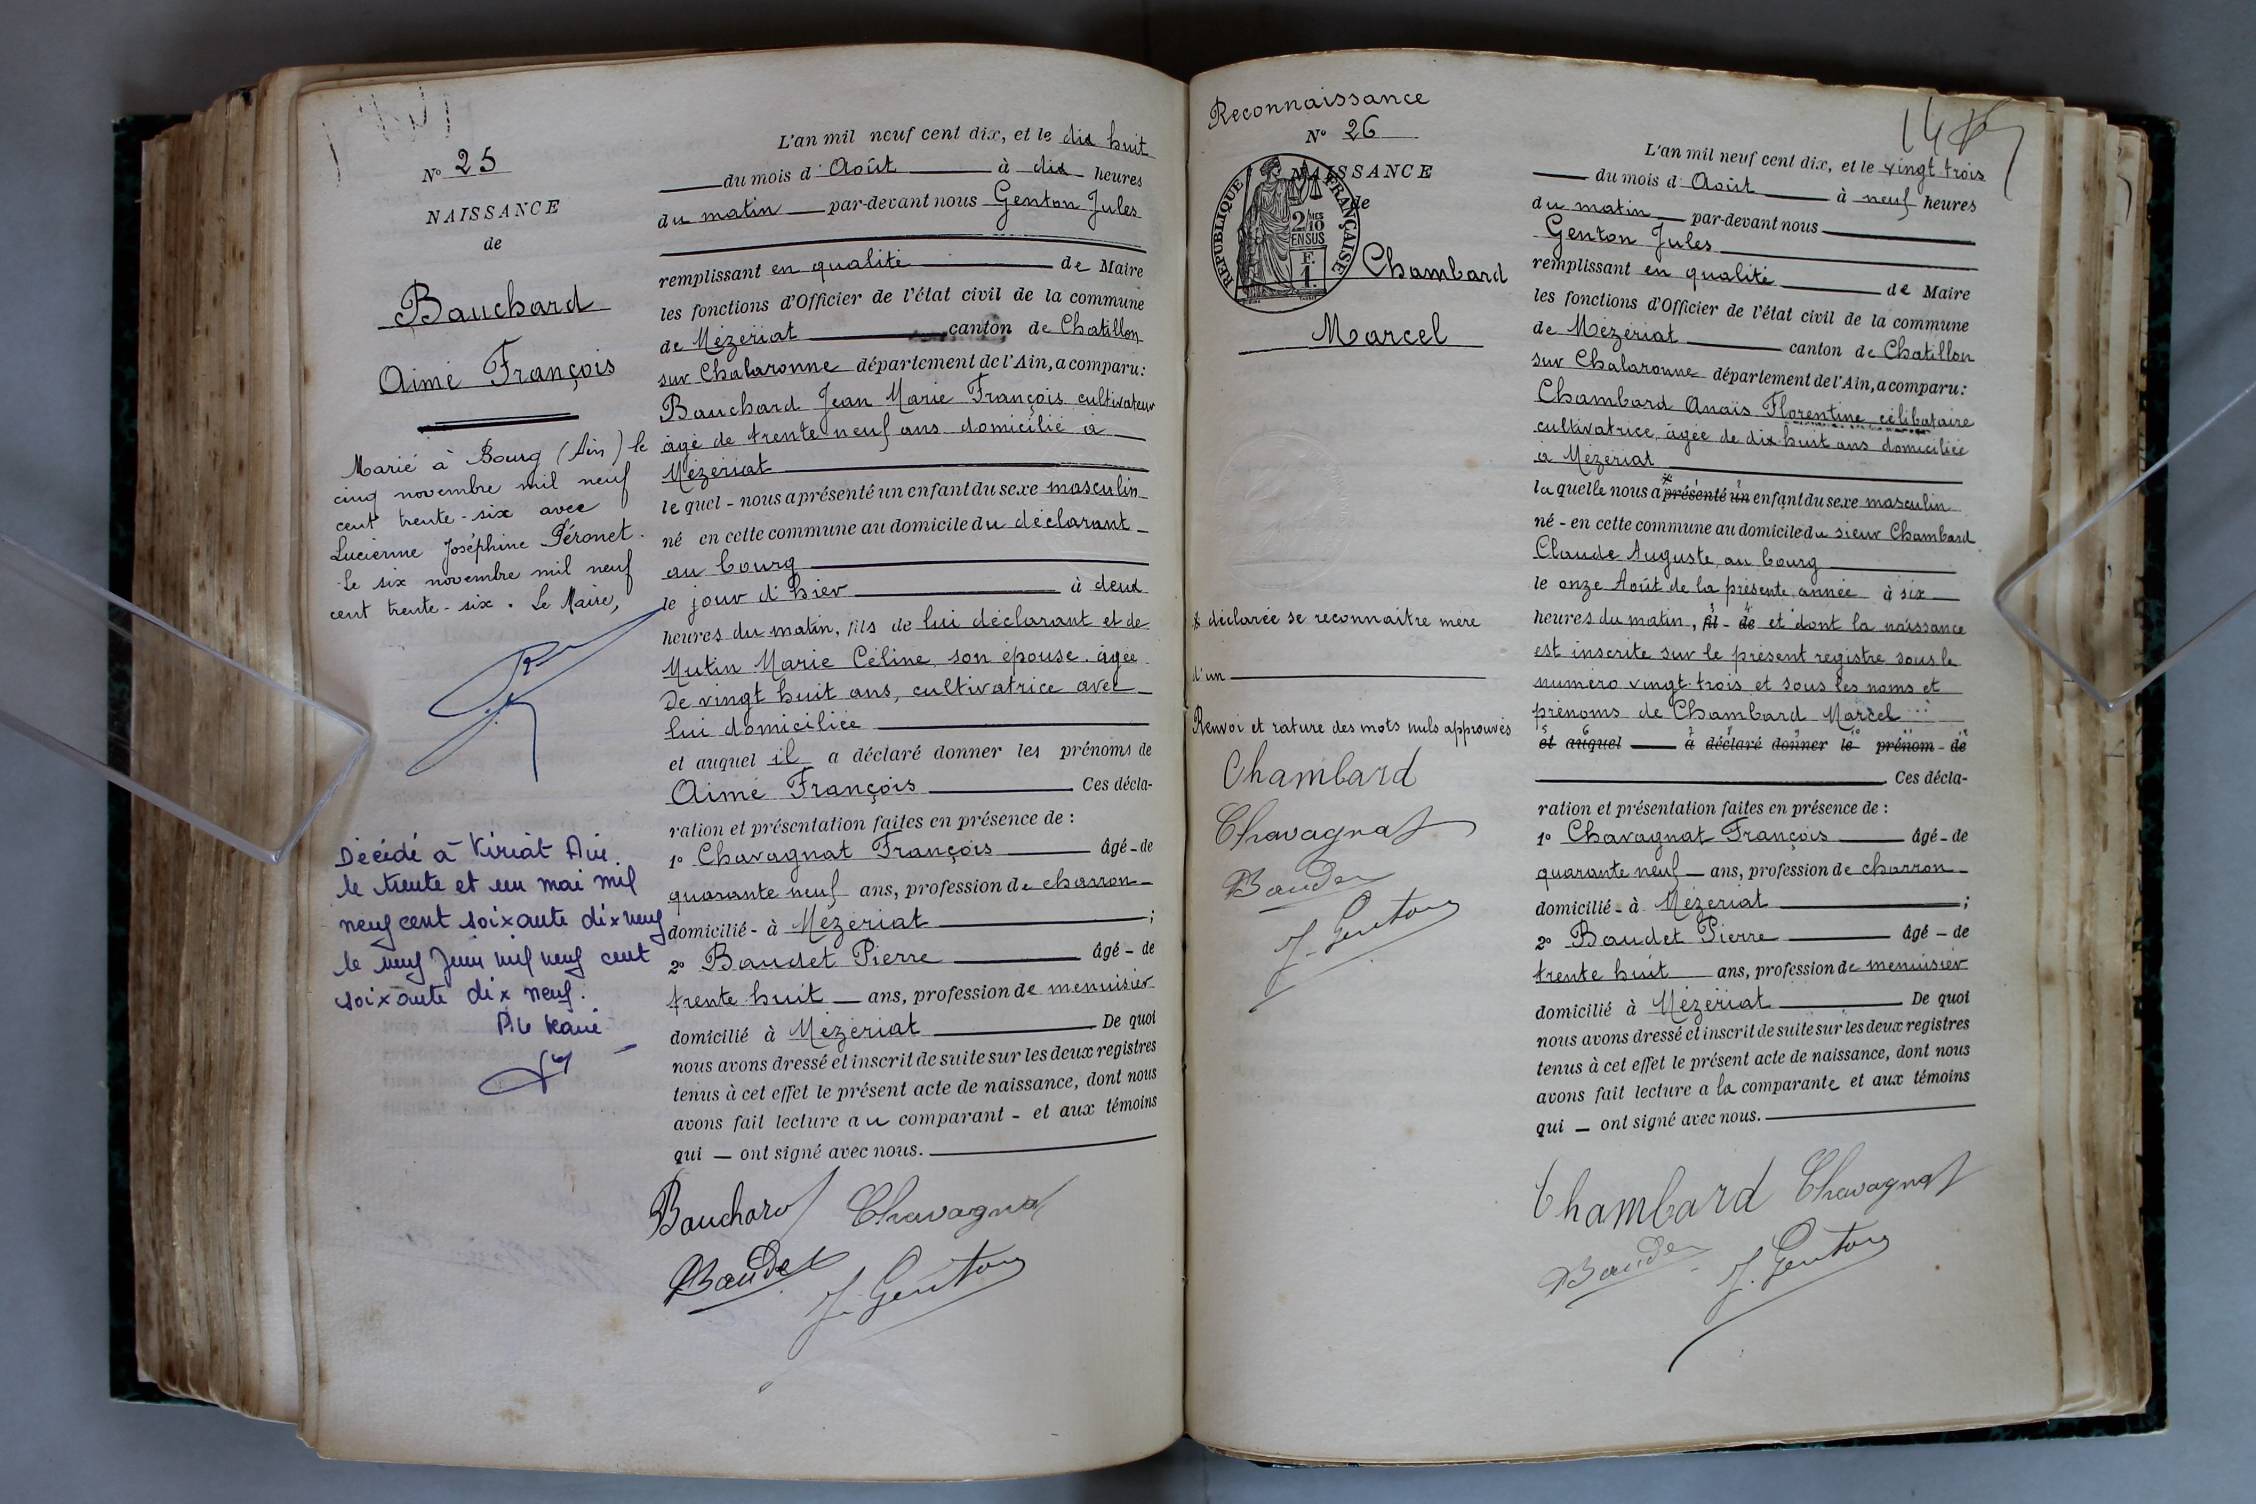 N° 25
NAISSANCE
de
Bauchard
Aimé François
Marié à Bourg (Ain) le
cinq novembre mil neuf
cent trente-six avec
Lucienne Joséphine Péronet.
Le six novembre mil neuf
cent trente-six. Le Maire,
Décédé à Viriat Ain
le trente et un mai mil
neuf cent soixante dix neuf
le neuf Juin mil neuf cent
soixante dix neuf.
L'an mil neuf cent dix, et le dix huit
du mois d'Août à dix heures
du matin par-devant nous Genton Jules
remplissant en qualité de Maire
les fonctions d'Officier de l'état civil de la commune
de Mézériat canton de Chatillon
sur Chalaronne département de l'Ain, a comparu:
Bauchard Jean Marie François cultivateur
âgé de trente neuf ans domicilié à
Mézériat
le quel - nous a présenté un enfant du sexe masculin
né en cette commune au domicile du déclarant
au bourg
le jour d'hier à deux
heures du matin, fils de lui déclarant et de
Mutin Marie Céline son épouse âgée
de vingt huit ans, cultivatrice avec
lui domiciliée
et auquel il a déclaré donner les prénoms de
Aimé François Ces décla-
ration et présentation faites en présence de :
1° Chavagnat François âgé - de
quarante neuf ans, profession de charron
domicilié - à Mézériat ;
2° Baudet Pierre âgé - de
trente huit ans, profession de menuisier
domicilié à Mézériat De quoi
nous avons dressé et inscrit de suite sur les deux registres
tenus à cet effet le présent acte de naissance, dont nous
avons fait lecture au comparant - et aux témoins
qui — ont signé avec nous.
Bauchard Chavagnat
Baudet J. Genton
Reconnaissance
N° 26
NAISSANCE
de
RÉPUBLIQUE FRANÇAISE
2/10 MES
EN SUS
F.
1.
Chambard
Marcel
* déclarée se reconnaitre mère
d'un
Renvoi et rature des mots nuls approuvés
Chambard
Chavagnat
Baudet
J. Genton
L'an mil neuf cent dix, et le vingt trois
du mois d'Août à neuf heures
du matin par-devant nous
Genton Jules
remplissant en qualité de Maire
les fonctions d'Officier de l'état civil de la commune
de Mézériat canton de Chatillon
sur Chalaronne département de l'Ain, a comparu:
Chambard Anaïs Florentine célibataire
cultivatrice, âgée de dix huit ans domiciliée
à Mézériat
la quelle nous a * présenté un enfant du sexe masculin
né - en cette commune au domicile du sieur Chambard
Claude Auguste, au bourg
le onze Août de la présente année à six
heures du matin, fil - de et dont la naissance
est inscrite sur le présent registre sous le
numéro vingt-trois et sous les noms et
prénoms de Chambard Marcel
et auquel — a déclaré donner le prénom - de
Ces décla-
ration et présentation faites en présence de :
1° Chavagnat François âgé - de
quarante neuf ans, profession de charron
domicilié - à Mézériat ;
2° Baudet Pierre âgé - de
trente huit ans, profession de menuisier
domicilié à Mézériat De quoi
nous avons dressé et inscrit de suite sur les deux registres
tenus à cet effet le présent acte de naissance, dont nous
avons fait lecture a la comparante et aux témoins
qui — ont signé avec nous.
Chambard Chavagnat
Baudet J. Genton